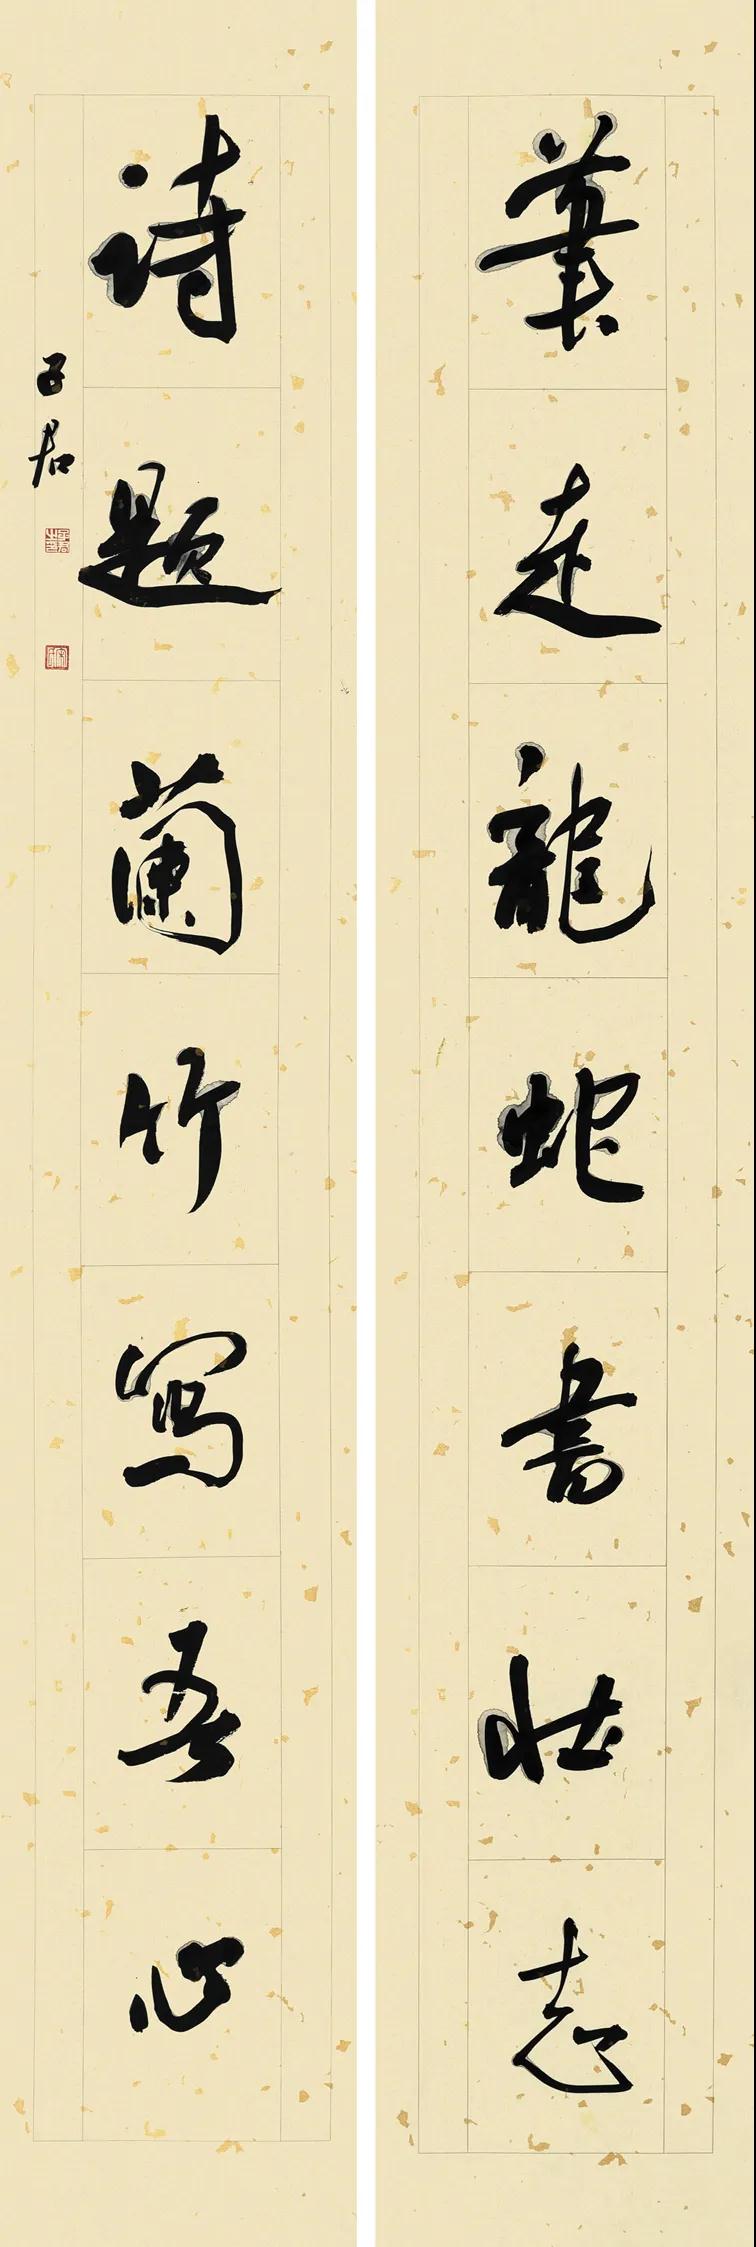 筆走龍蛇書壯志
詩題蘭竹寫吾心
子君